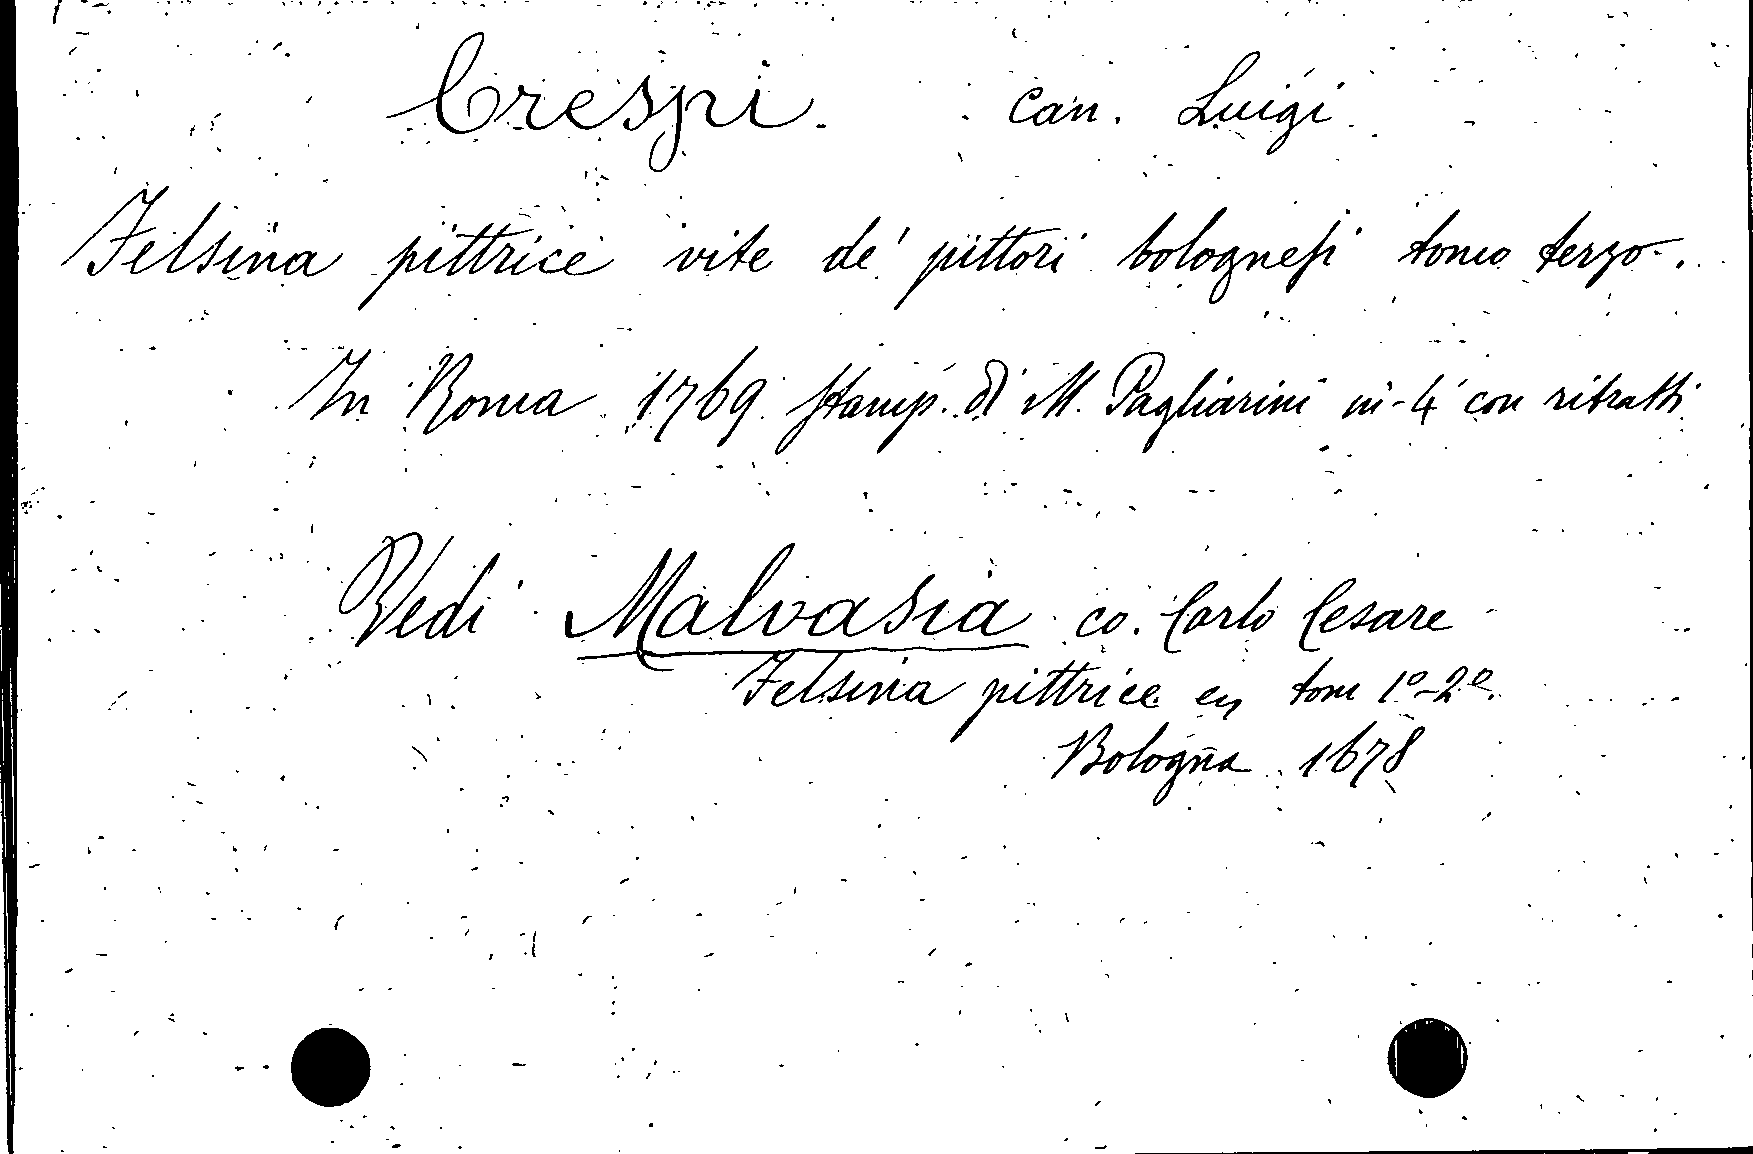 Crespi. can. Luigi
Felsina pittrice vite de' pittori bolognesi tomo terzo.
In Roma 1769 stamp. di M. Pagliarini in-4 con ritratti
Vedi Malvasia co. Carlo Cesare
Felsina pittrice tom 1º-2º.
Bologna 1678